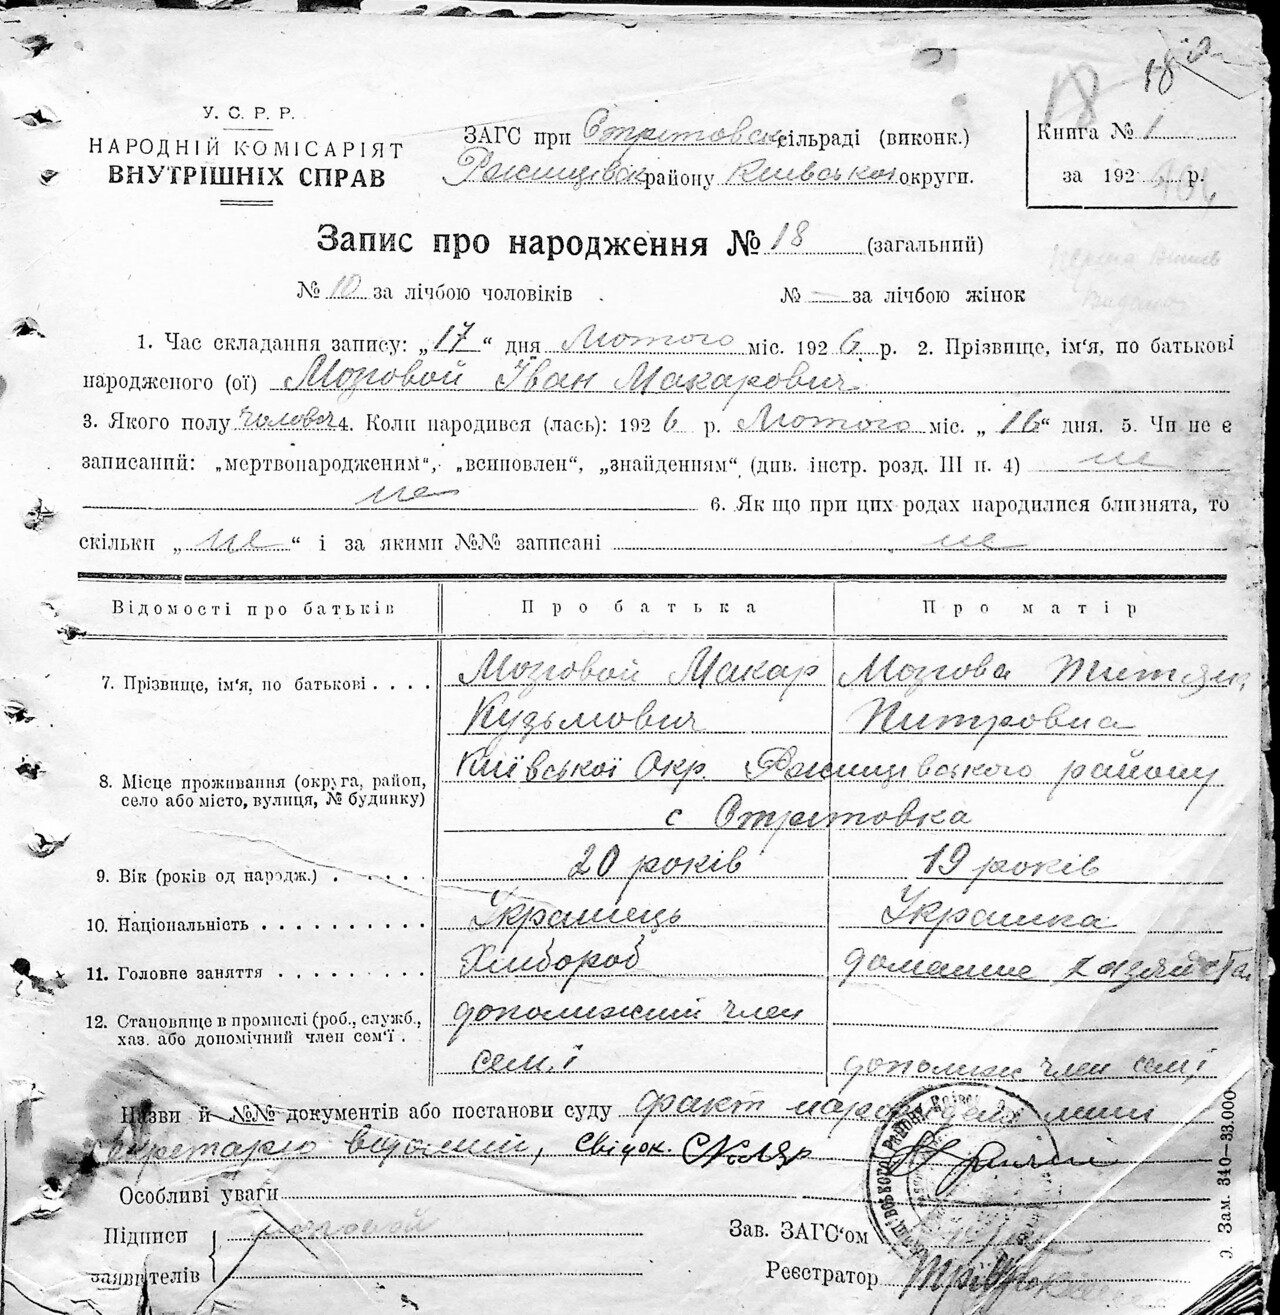 18 18
У. С. Р. Р.
НАРОДНІЙ КОМІСАРІЯТ
ВНУТРІШНІХ СПРАВ
ЗАГС при Стритовск сільраді (виконк.)
Ржищівськ району Київської округи.
Книга № 1
за 192 р.
Запис про народження № 18 (загальний)
№ 10 за лічбою чоловіків № — за лічбою жінок
1. Час складання запису: „17“ дня Лютого міс. 1926 р. 2. Прізвище, ім'я, по батькові
народженого (ої) Мозговой Іван Макарович
3. Якого полу чоловіч 4. Коли народився (лась): 1926 р. Лютого міс. „16“ дня. 5. Чи не є
записаний: „мертвонародженим“, „всиновлен“, „знайденням“ (див. інстр. розд. III п. 4) не
не 6. Як що при цих родах народилися близнята, то
скільки „не“ і за якими №№ записані не
Відомості про батьків Про батька Про матір
7. Прізвище, ім'я, по батькові . . . . Мозговой Макар Мозгова Титян
Кузьмович Питровна
8. Місце проживання (округа, район, Київської Окр. Ржищівського району
село або місто, вулиця, № будинку) с Стритовка
9. Вік (років од народж.) . . . . . 20 років 19 років
10. Національність . . . . . . . . . . Українець Українка
11. Головне заняття . . . . . . . . . Хлибороб домашне хазяйства
12. Становище в промислі (роб., служб., допомижний член
хаз. або допомічний член сем'ї . сем,ї допомиж член сем,ї
Назви й №№ документів або постанови суду факт
секретарю відомий, Свідок. Скляр
Особливі уваги
Підписи Мозговой
заявителів
Зав. ЗАГС'ом
Реєстратор
Зам. 340—33.000